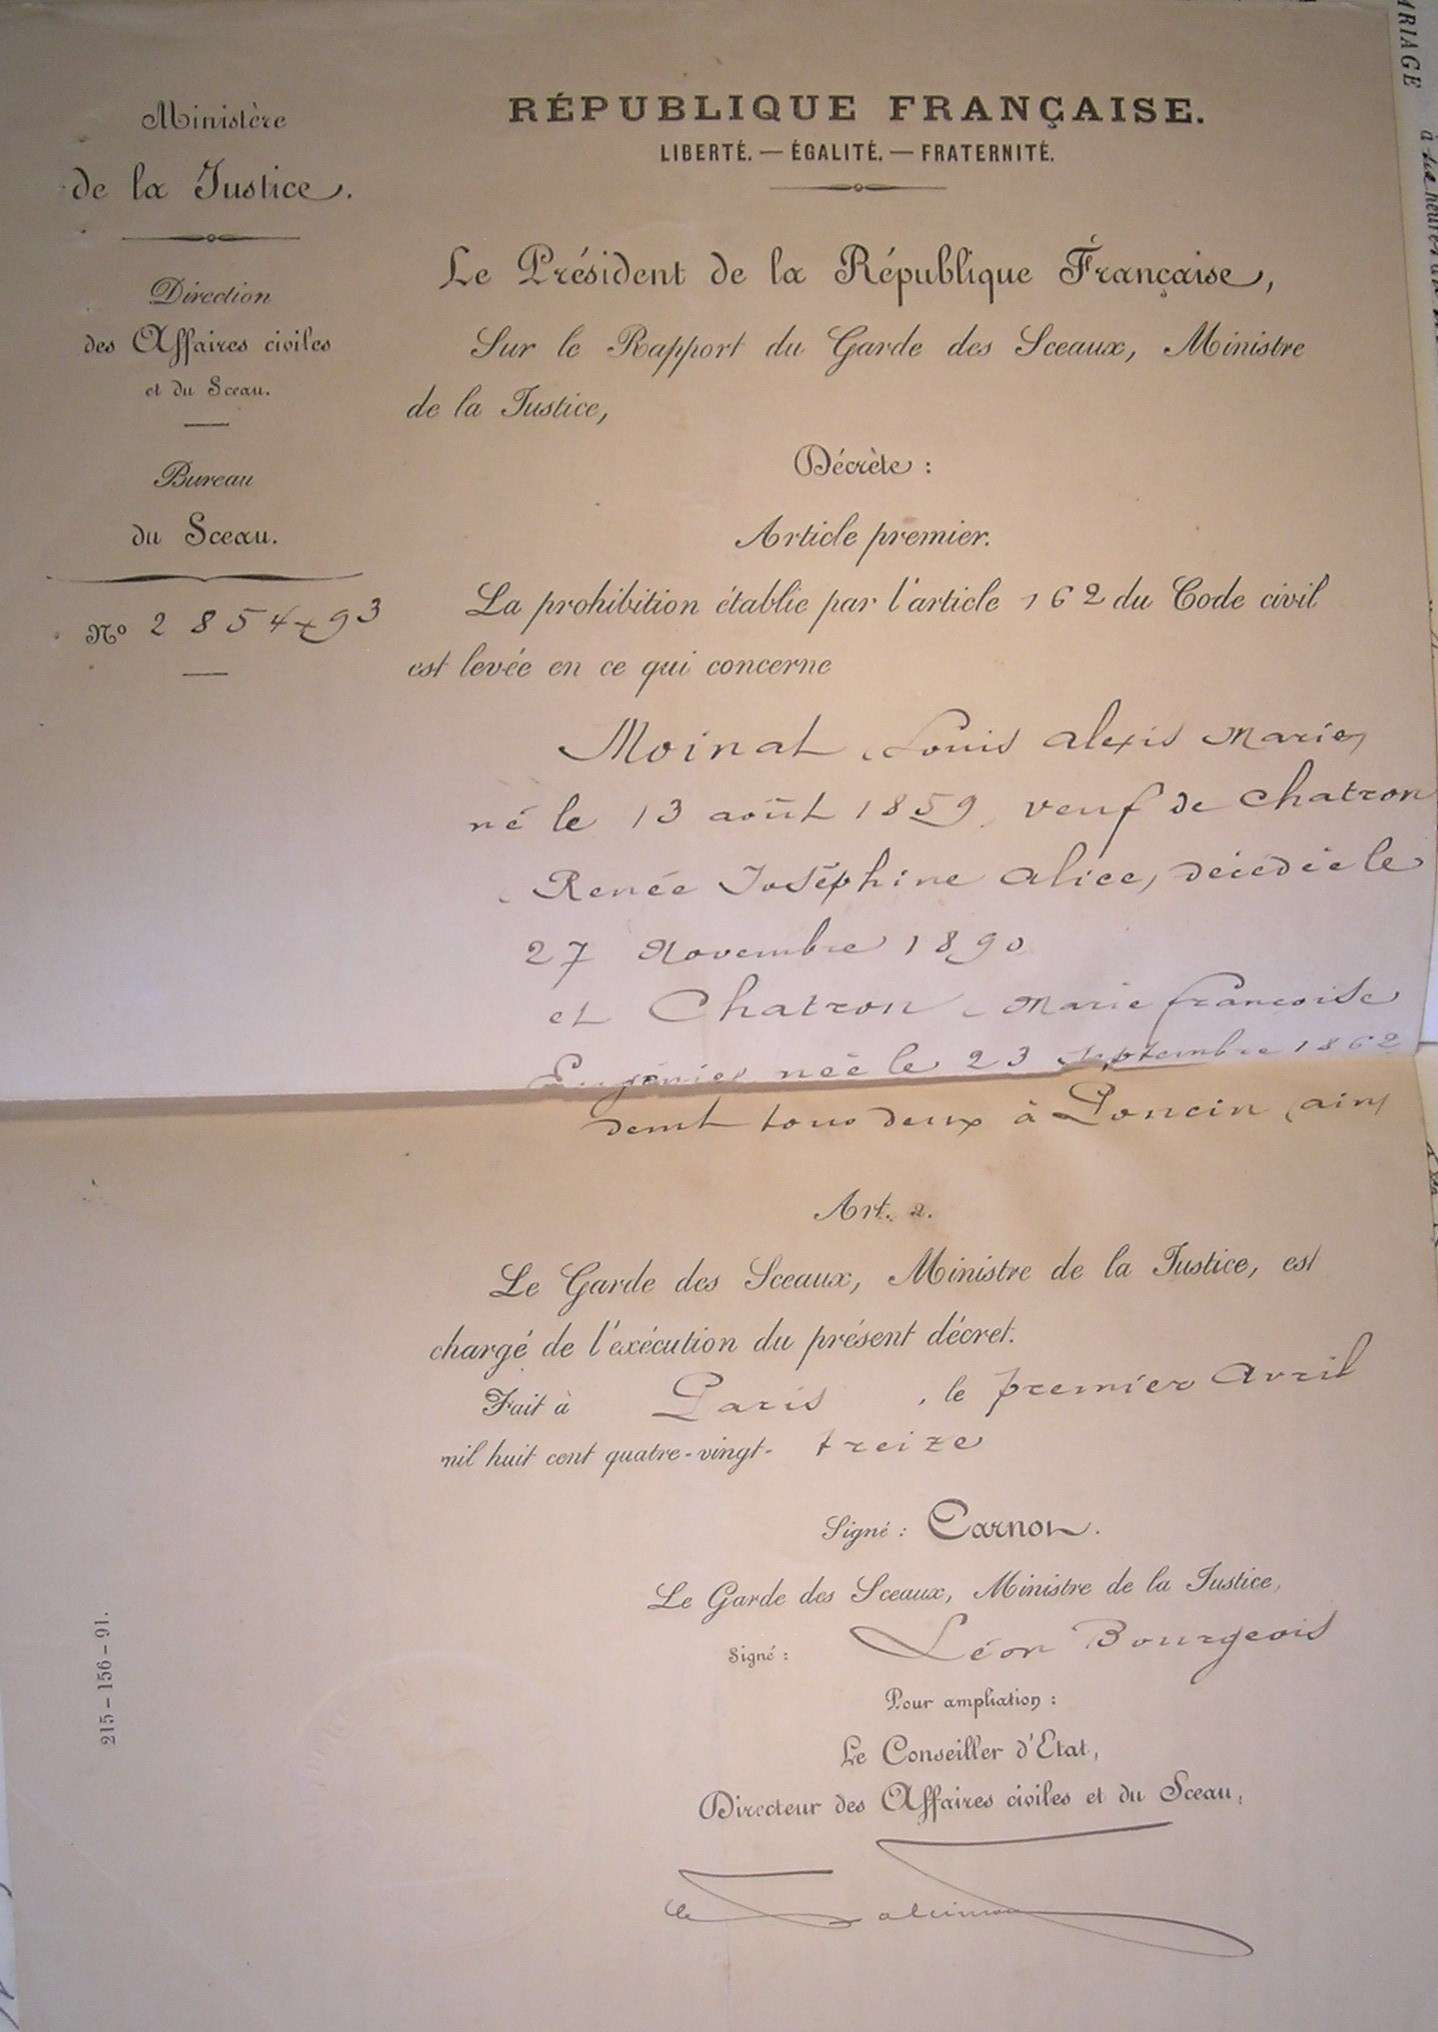 Ministère
de la Justice.
Direction
des Affaires civiles
et du Sceau.
Bureau
du Sceau.
N° 2854 x 93
RÉPUBLIQUE FRANÇAISE.
LIBERTÉ. — ÉGALITÉ. — FRATERNITÉ.
Le Président de la République Française,
Sur le Rapport du Garde des Sceaux, Ministre
de la Justice,
Décrète :
Article premier.
La prohibition établie par l'article 162 du Code civil
est levée en ce qui concerne
Moinat Louis Alexis Marie,
né le 13 août 1859, veuf de Chatron
Renée Joséphine Alice, décédée le
27 Novembre 1890
et Chatron Marie Françoise
Eugénie née le 23 Septembre 1862
demt tous deux à Poncin (Ain)
Art. 2.
Le Garde des Sceaux, Ministre de la Justice, est
chargé de l'exécution du présent décret.
Fait à Paris, le premier Avril
mil huit cent quatre-vingt-treize
Signé : Carnot.
Le Garde des Sceaux, Ministre de la Justice,
Signé : Léon Bourgeois
Pour ampliation :
Le Conseiller d'Etat,
Directeur des Affaires civiles et du Sceau,
215-156-91.
ARIAGE